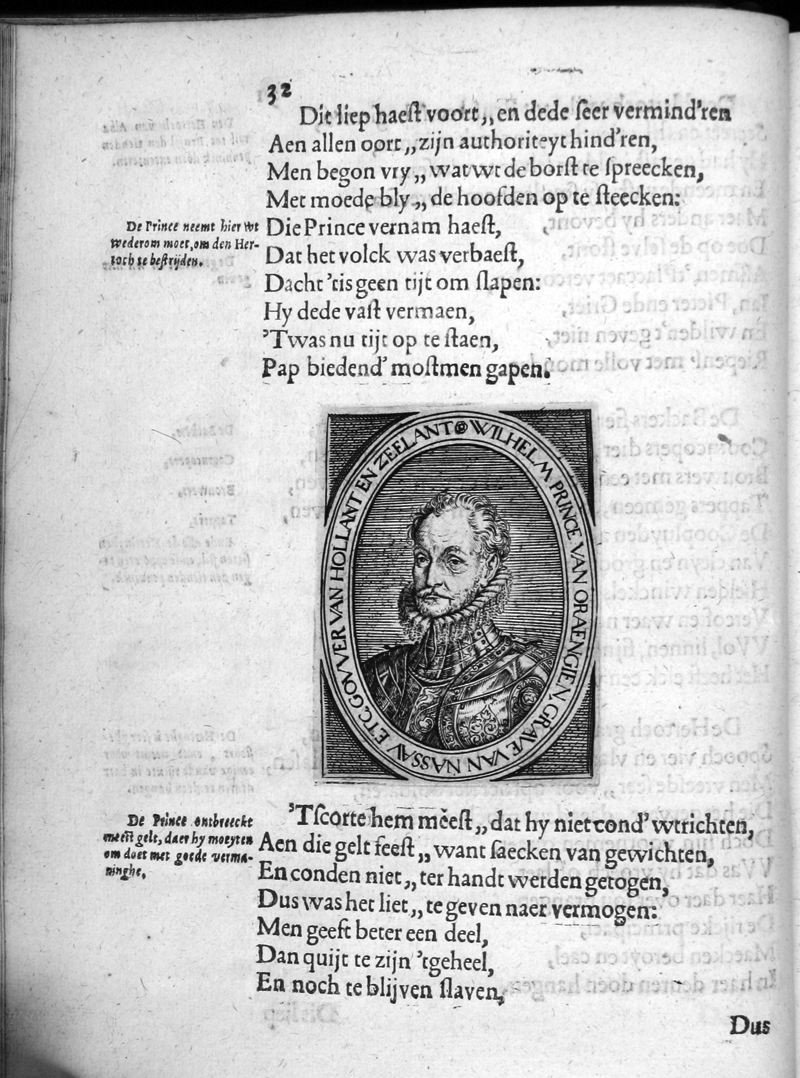 32
Dit liep haeſt voort,, en dede ſeer vermind'ren
Aen allen oort,, zijn authoriteyt hind'ren,
Men begon vry,, wat wt de borſt te ſpreecken,
Met moede bly,, de hoofden op te ſteecken:
De Prince neemt hier wt
wederom moet, om den Her-
toch te beſtrijden.
Die Prince vernam haeſt,
Dat het volck was verbaeſt,
Dacht 'tis geen tijt om ſlapen:
Hy dede vaſt vermaen,
'Twas nu tijt op te ſtaen,
Pap biedend' moſtmen gapen.
WILHELM PRINCE VAN ORAENGIEN, GRAVE VAN NASSAV ETC. GOVVER VAN HOLLANT EN ZEELANT
'Tſcorte hem meeſt,, dat hy niet cond' wtrichten,
De Prince ontbreeckt
meeſt gelt, daer hy moeyten
om doet met goede verma-
ninghe.
Aen die gelt feeſt,, want ſaecken van gewichten,
En conden niet,, ter handt werden getogen,
Dus was het liet,, te geven naer vermogen:
Men geeft beter een deel,
Dan quijt te zijn 'tgeheel,
En noch te blijven ſlaven,
Dus